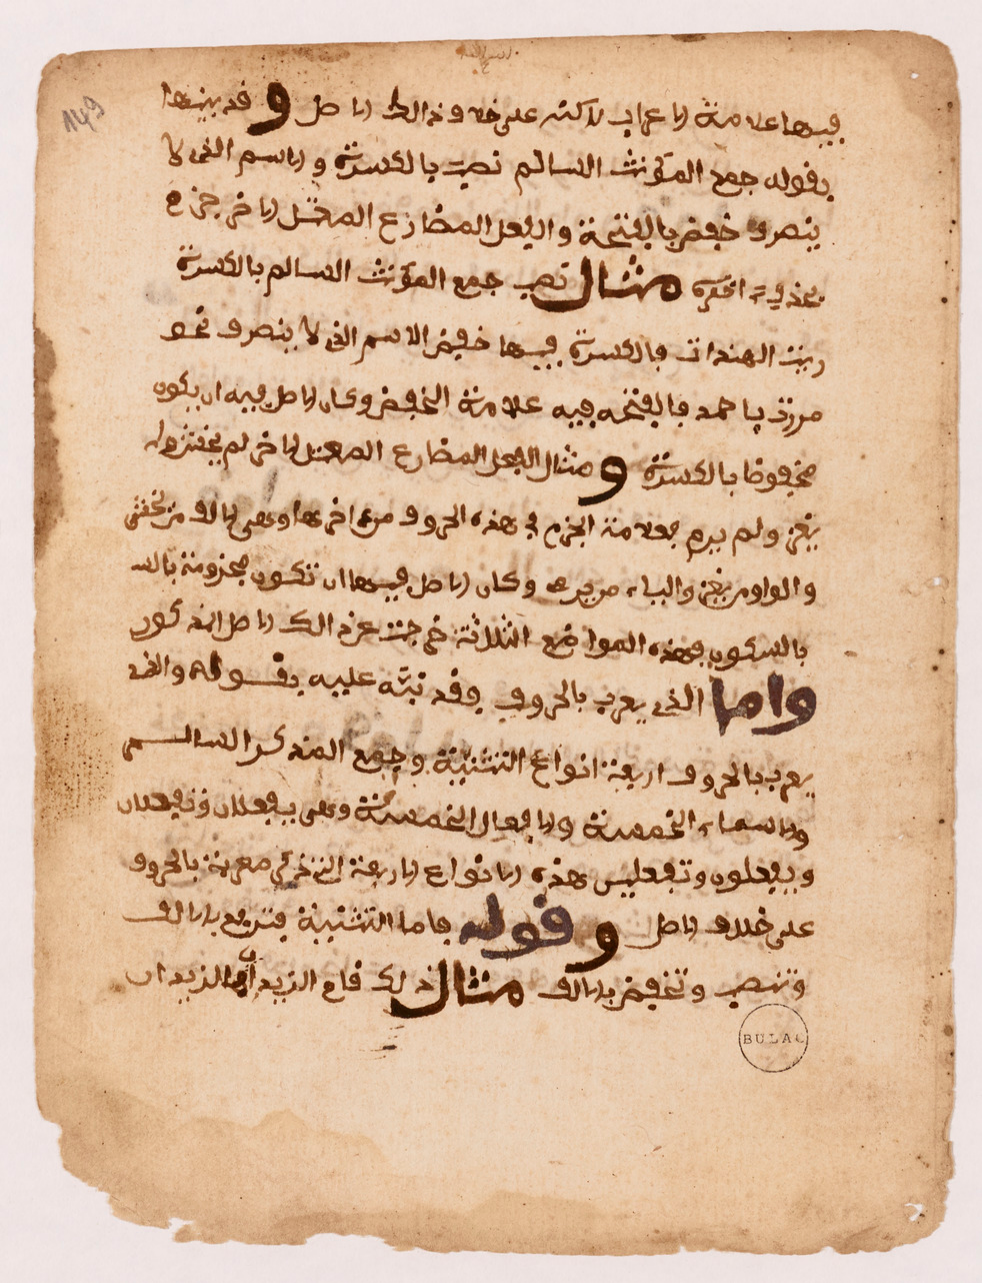 149
فيها علامة الاعراب لاكنه على خلاف ذالك الاصل وقد بينها
بقوله جمع المؤنث السالم نصب بالكسرة والاسم الذي لا
ينصرف خفض بالفتحة والفعل المضارع المعتل الاخر جزم
بحذف اخره مثال نصب جمع المؤنث السالم بالكسرة
رايت الهندات فالكسرة فيها خفض الاسم الذي لا ينصرف نحو
مررت باحمد فالفتحه فيه علامة الخفض وكان الاصل فيه ان يكون
مخفوضا بالكسرة ومثال الفعل المضارع المعتل الاخر لم يخش ولم
يغز ولم يرم فعلامة الجزم في هذه الحروف من اخرها وهي الالف من يخشى
والواو من يغزو والياء من يرمي وكان الاصل فيها ان تكون مجزومة بالس
بالسكون فهذه المواضع الثلاثة خرجت عن ذالك الاصل المذكور
واما الذي يعرب بالحروف وقد نبّه عليه بقوله والذي
يعرب بالحروف اربعة انواع التثنية وجمع المذكر السالم
والاسماء الخمسة والافعال الخمسة وهي يفعلان وتفعلان
ويفعلون وتفعلين هذه الانواع الاربعة التي معربة بالحروف
على خلاف الاصل وقوله فاما التثنية فترفع بالالف
وتنصب وتخفض بالالف مثال ذلك قام الزيدان الزيدان
BULAC